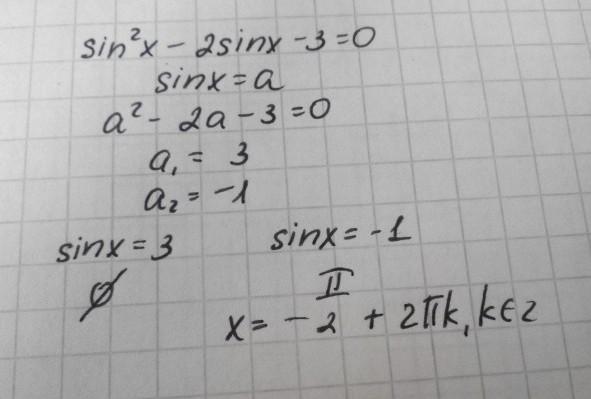 sin²x - 2sinx - 3 = 0
sinx = a
a² - 2a - 3 = 0
a₁ = 3
a₂ = -1
sinx = 3 sinx = -1
∅ x = -π/2 + 2πk, k∈z